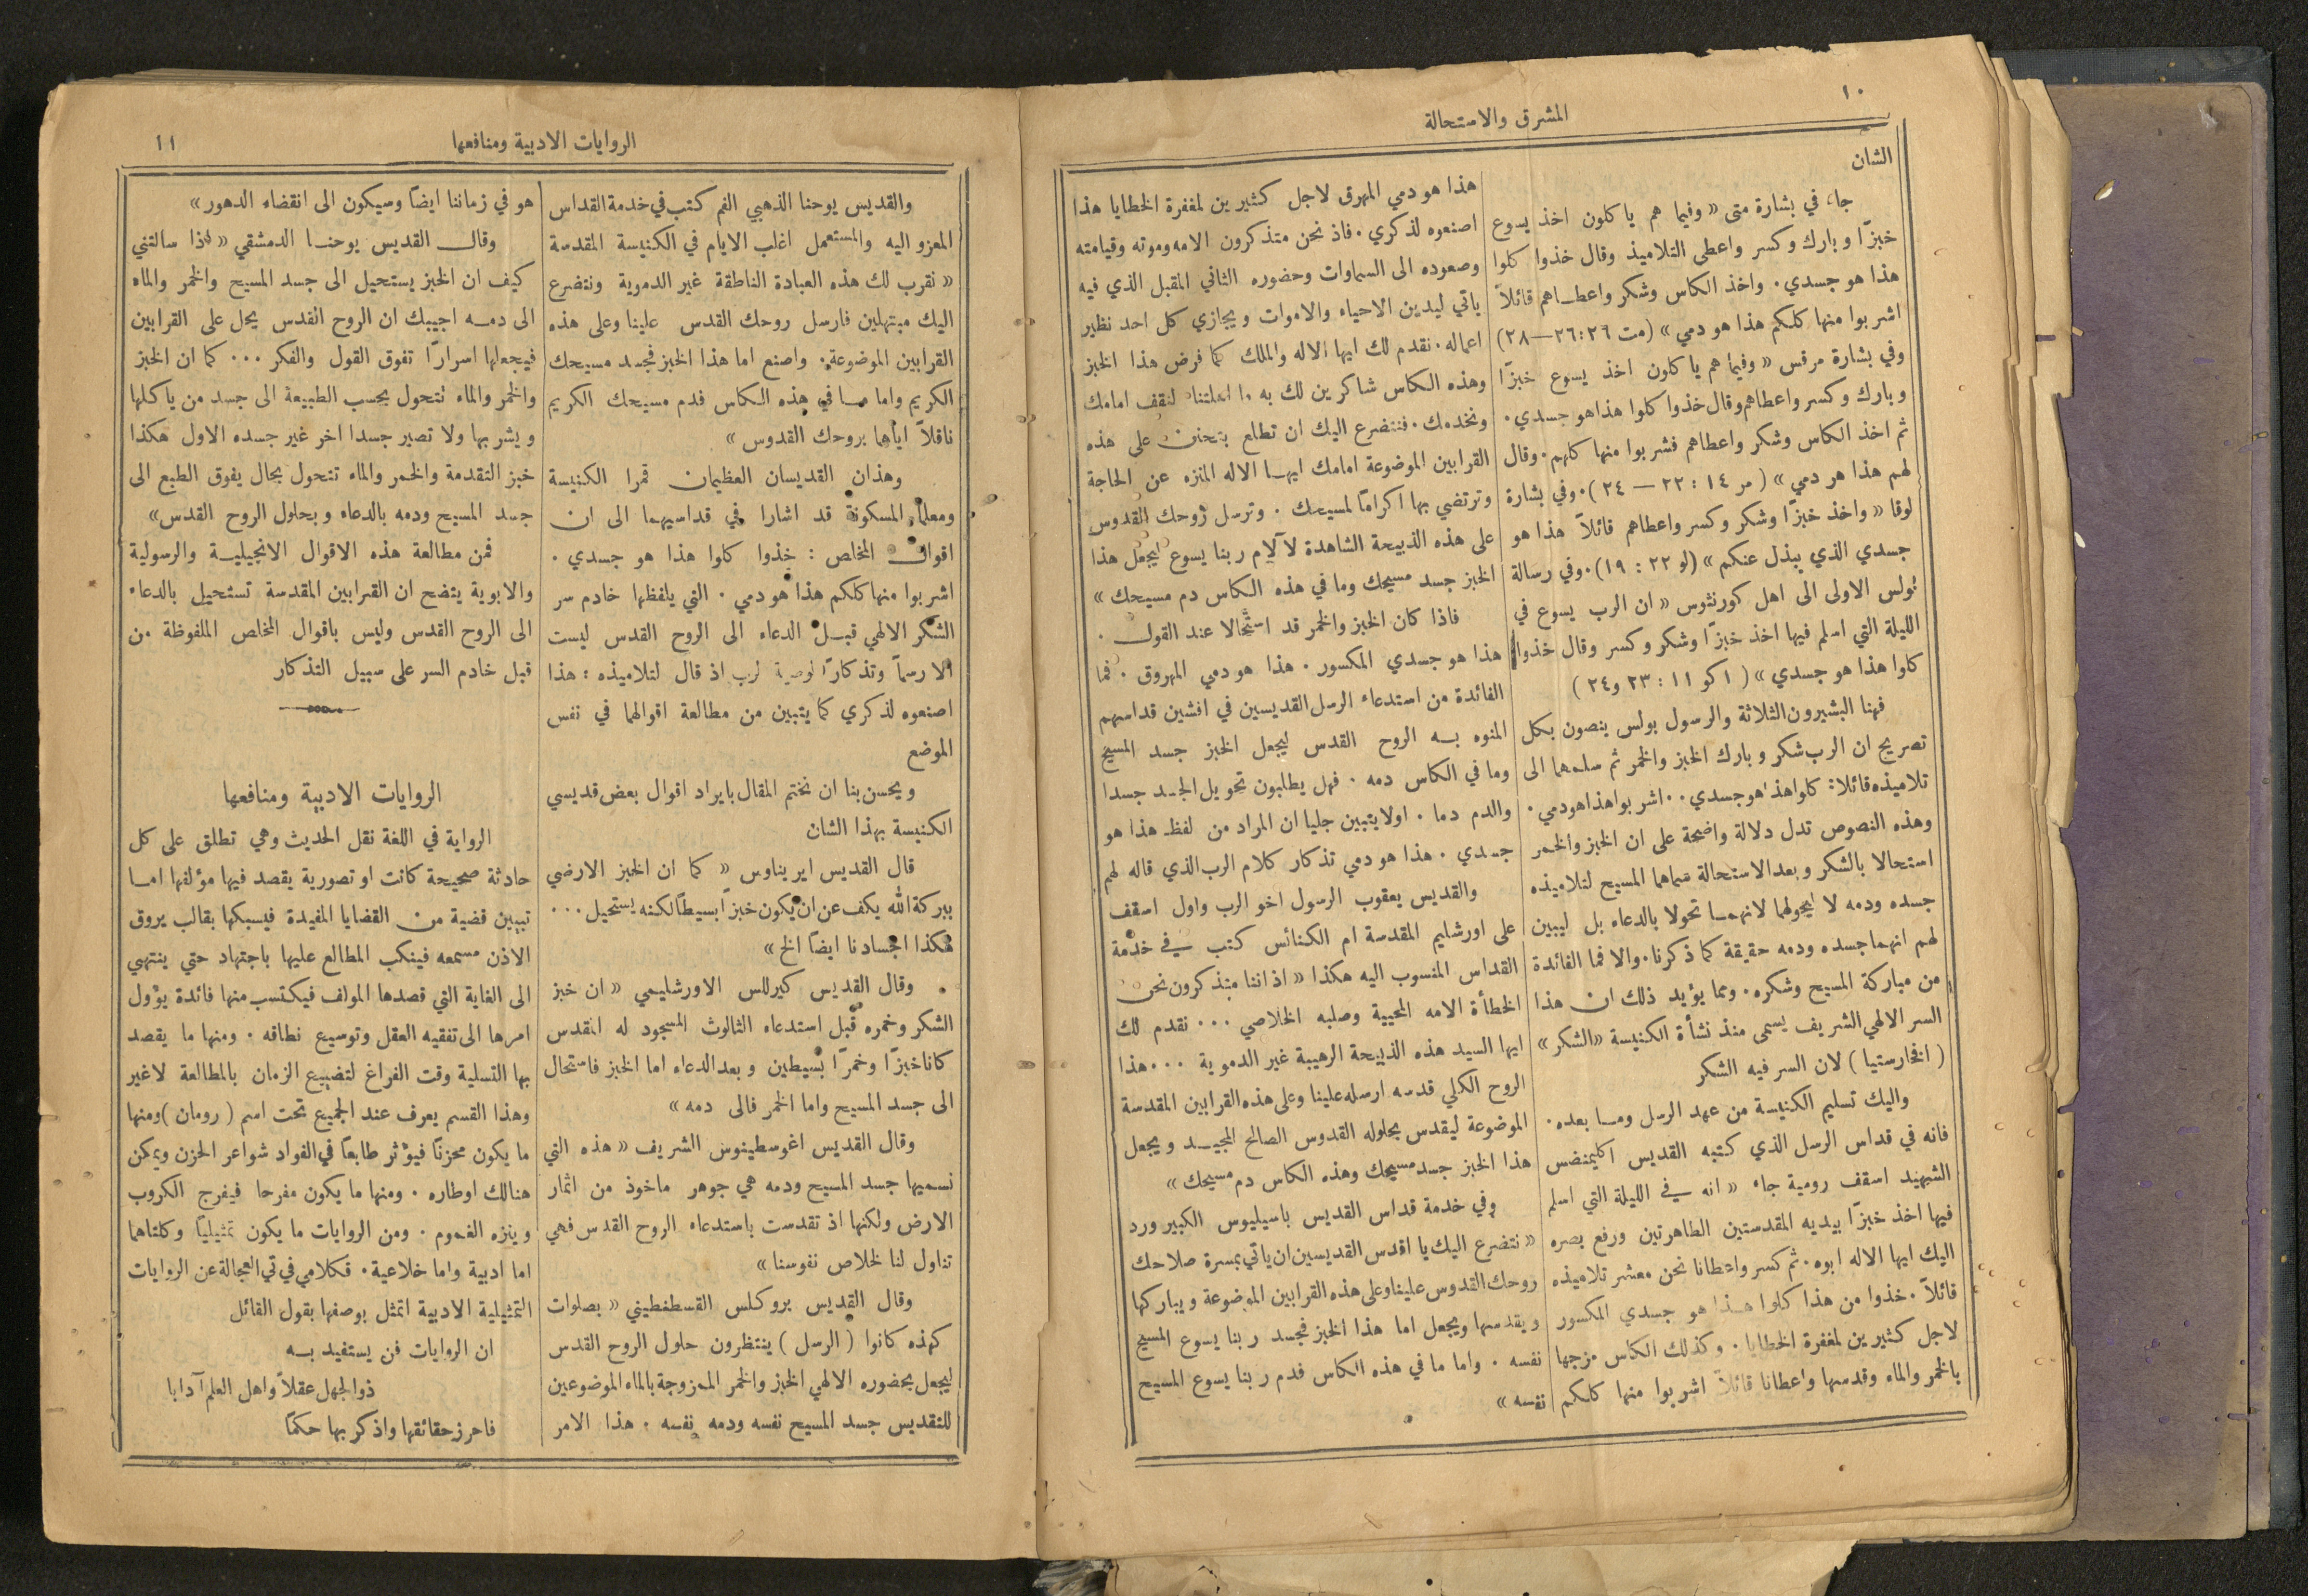 ١٠
المشرق والاستحالة
الشان
جاء في بشارة متى « وفيما هم ياكلون اخذ يسوع
خبزًا وبارك وكسر واعطى التلاميذ وقال خذوا كلوا
هذا هو جسدي . واخذ الكاس وشكر واعطاهم قائلاً
اشربوا منها كلكم هذا هو دمي » (مت ٢٦:٢٦—٢٨)
وفي بشارة مرقس « وفيما هم ياكلون اخذ يسوع خبزًا
وبارك وكسر واعطاهم وقال خذوا كلوا هذا هو جسدي .
ثم اخذ الكاس وشكر واعطاهم فشربوا منها كلهم . وقال
لهم هذا هو دمي » ( مر ١٤ : ٢٢ — ٢٤ ) . وفي بشارة
لوقا « واخذ خبزًا وشكر وكسر واعطاهم قائلاً هذا هو
جسدي الذي يبذل عنكم » (لو ٢٢ : ١٩) . وفي رسالة
بولس الاولى الى اهل كورنثوس « ان الرب يسوع في
الليلة التي اسلم فيها اخذ خبزًا وشكر وكسر وقال خذوا
كلوا هذا هو جسدي » ( ١ كو ١١ : ٢٣ و٢٤ )
فهنا البشيرون الثلاثة والرسول بولس ينصون بكل
تصريح ان الرب شكر وبارك الخبز والخمر ثم سلمهما الى
تلاميذه قائلا: كلوا هذا هو جسدي . . اشربوا هذا هو دمي .
وهذه النصوص تدل دلالة واضحة على ان الخبز والخمر
استحالا بالشكر وبعد الاستحالة سماهما المسيح لتلاميذه
جسده ودمه لا ليحولهما لانهما تحولا بالدعاء بل ليبين
لهم انهما جسده ودمه حقيقة كما ذكرنا . والا فما الفائدة
من مباركة المسيح وشكره . ومما يؤيد ذلك ان هذا
السر الالهي الشريف يسمى منذ نشأة الكنيسة «الشكر»
( افخارستيا ) لان السر فيه الشكر
واليك تسليم الكنيسة من عهد الرسل وما بعده .
فانه في قداس الرسل الذي كتبه القديس اكليمنضس
الشهيد اسقف رومية جاء « انه في الليلة التي اسلم
فيها اخذ خبزًا بيديه المقدستين الطاهرتين ورفع بصره
اليك ايها الاله ابوه . ثم كسر واعطانا نحن معشر تلاميذه
قائلاً . خذوا من هذا كلوا هذا هو جسدي المكسور
لاجل كثيرين لمغفرة الخطايا . وكذلك الكاس مزجها
بالخمر والماء وقدسها واعطانا قائلاً اشربوا منها كلكم
هذا هو دمي المهرق لاجل كثيرين لمغفرة الخطايا هذا
اصنعوه لذكري . فاذ نحن متذكرون الامه وموته وقيامته
وصعوده الى السماوات وحضوره الثاني المقبل الذي فيه
ياتي ليدين الاحياء والاموات ويجازي كل احد نظير
اعماله . نقدم لك ايها الاله والملك كما فرض هذا الخبز
وهذه الكاس شاكرين لك به ما اهلتنا لنقف امامك
ونخدمك . فنتضرع اليك ان تطلع بتحنن على هذه
القرابين الموضوعة امامك ايها الاله المنزه عن الحاجة
وترتضي بها اكرامًا لمسيحك . وترسل روحك القدوس
على هذه الذبيحة الشاهدة لآلام ربنا يسوع ليجعل هذا
الخبز جسد مسيحك وما في هذه الكاس دم مسيحك »
فاذا كان الخبز والخمر قد استحالا عند القول .
هذا هو جسدي المكسور . هذا هو دمي المهروق . فما
الفائدة من استدعاء الرسل القديسين في افشين قداسهم
المنوه به الروح القدس ليجعل الخبز جسد المسيح
وما في الكاس دمه . فهل يطلبون تحويل الجسد جسدا
والدم دما . اولا يتبين جليا ان المراد من لفظ هذا هو
جسدي . هذا هو دمي تذكار كلام الرب الذي قاله لهم
والقديس يعقوب الرسول اخو الرب واول اسقف
على اورشليم المقدسة ام الكنائس كتب في خدمة
القداس المنسوب اليه هكذا « اذ اننا متذكرون نحن
الخطأة الامه المحيية وصلبه الخلاصي ... نقدم لك
ايها السيد هذه الذبيحة الرهيبة غير الدموية ... هذا
الروح الكلي قدسه ارسله علينا وعلى هذه القرابين المقدسة
الموضوعة ليقدس بحلوله القدوس الصالح المجيد ويجعل
هذا الخبز جسد مسيحك وهذه الكاس دم مسيحك »
وفي خدمة قداس القديس باسيليوس الكبير ورد
« نتضرع اليك يا اقدس القديسين ان ياتي بمسرة صلاحك
روحك القدوس علينا وعلى هذه القرابين الموضوعة ويباركها
ويقدسها ويجعل اما هذا الخبز فجسد ربنا يسوع المسيح
نفسه . واما ما في هذه الكاس فدم ربنا يسوع المسيح
نفسه »
الروايات الادبية ومنافعها
١١
والقديس يوحنا الذهبي الفم كتب في خدمة القداس
المعزو اليه والمستعمل اغلب الايام في الكنيسة المقدسة
« نقرب لك هذه العبادة الناطقة غير الدموية ونتضرع
اليك مبتهلين فارسل روحك القدس علينا وعلى هذه
القرابين الموضوعة . واصنع اما هذا الخبز فجسد مسيحك
الكريم واما ما في هذه الكاس فدم مسيحك الكريم
ناقلاً اياهما بروحك القدوس »
وهذان القديسان العظيمان قمرا الكنيسة
ومعلما المسكونة قد اشارا في قداسيهما الى ان
اقوال المخلص : خذوا كلوا هذا هو جسدي .
اشربوا منها كلكم هذا هو دمي . التي يلفظها خادم سر
الشكر الالهي قبل الدعاء الى الروح القدس ليست
الا رسماً وتذكارًا لوصية الرب اذ قال لتلاميذه : هذا
اصنعوه لذكري كما يتبين من مطالعة اقوالهما في نفس
الموضع
ويحسن بنا ان نختم المقال بايراد اقوال بعض قديسي
الكنيسة بهذا الشان
قال القديس ايريناوس « كما ان الخبز الارضي
ببركة الله يكف عن ان يكون خبزاً بسيطاً لكنه يستحيل ...
هكذا اجسادنا ايضًا الخ »
وقال القديس كيرللس الاورشليمي « ان خبز
الشكر وخمره قبل استدعاء الثالوث المسجود له القدس
كانا خبزًا وخمرًا بسيطين وبعد الدعاء اما الخبز فاستحال
الى جسد المسيح واما الخمر فالى دمه »
وقال القديس اغوسطينوس الشريف « هذه التي
نسميها جسد المسيح ودمه هي جوهر ماخوذ من اثمار
الارض ولكنها اذ تقدست باستدعاء الروح القدس فهي
تناول لنا لخلاص نفوسنا »
وقال القديس بروكلس القسطنطيني « بصلوات
كهذه كانوا ( الرسل ) ينتظرون حلول الروح القدس
ليجعل بحضوره الالهي الخبز والخمر الممزوجة بالماء الموضوعين
للتقديس جسد المسيح نفسه ودمه نفسه . هذا الامر
هو في زماننا ايضاً وسيكون الى انقضاء الدهور »
وقال القديس يوحنا الدمشقي « اذا سالتني
كيف ان الخبز يستحيل الى جسد المسيح والخمر والماء
الى دمه اجيبك ان الروح القدس يحل على القرابين
فيجعلها اسرارًا تفوق القول والفكر ... كما ان الخبز
والخمر والماء تتحول بحسب الطبيعة الى جسد من ياكلها
ويشربها ولا تصير جسدا اخر غير جسده الاول هكذا
خبز التقدمة والخمر والماء تتحول بحال يفوق الطبع الى
جسد المسيح ودمه بالدعاء وبحلول الروح القدس »
فمن مطالعة هذه الاقوال الانجيلية والرسولية
والابوية يتضح ان القرابين المقدسة تستحيل بالدعاء
الى الروح القدس وليس باقوال المخلص الملفوظة من
قبل خادم السر على سبيل التذكار
الروايات الادبية ومنافعها
الرواية في اللغة نقل الحديث وهي تطلق على كل
حادثة صحيحة كانت او تصورية يقصد فيها مؤلفها اما
تبيين قضية من القضايا المفيدة فيسبكها بقالب يروق
الاذن مسمعه فينكب المطالع عليها باجتهاد حتي ينتهي
الى الغاية التي قصدها المولف فيكتسب منها فائدة يؤول
امرها الى تفقيه العقل وتوسيع نطاقه . ومنها ما يقصد
بها التسلية وقت الفراغ لتضييع الزمان بالمطالعة لاغير
وهذا القسم يعرف عند الجميع تحت اسم ( رومان ) ومنها
ما يكون محزنًا فيؤثر طابعًا في الفواد شواعر الحزن ويمكن
هنالك اوطاره . ومنها ما يكون مفرحا فيفرج الكروب
وينزه الغموم . ومن الروايات ما يكون تمثيليًا وكلتاهما
اما ادبية واما خلاعية . فكلامي في تي العجالة عن الروايات
التمثيلية الادبية اتمثل بوصفها بقول القائل
ان الروايات فن يستفيد به
ذو الجهل عقلاً واهل العلم آدابا
فاحرز حقائقها واذكر بها حكمًا